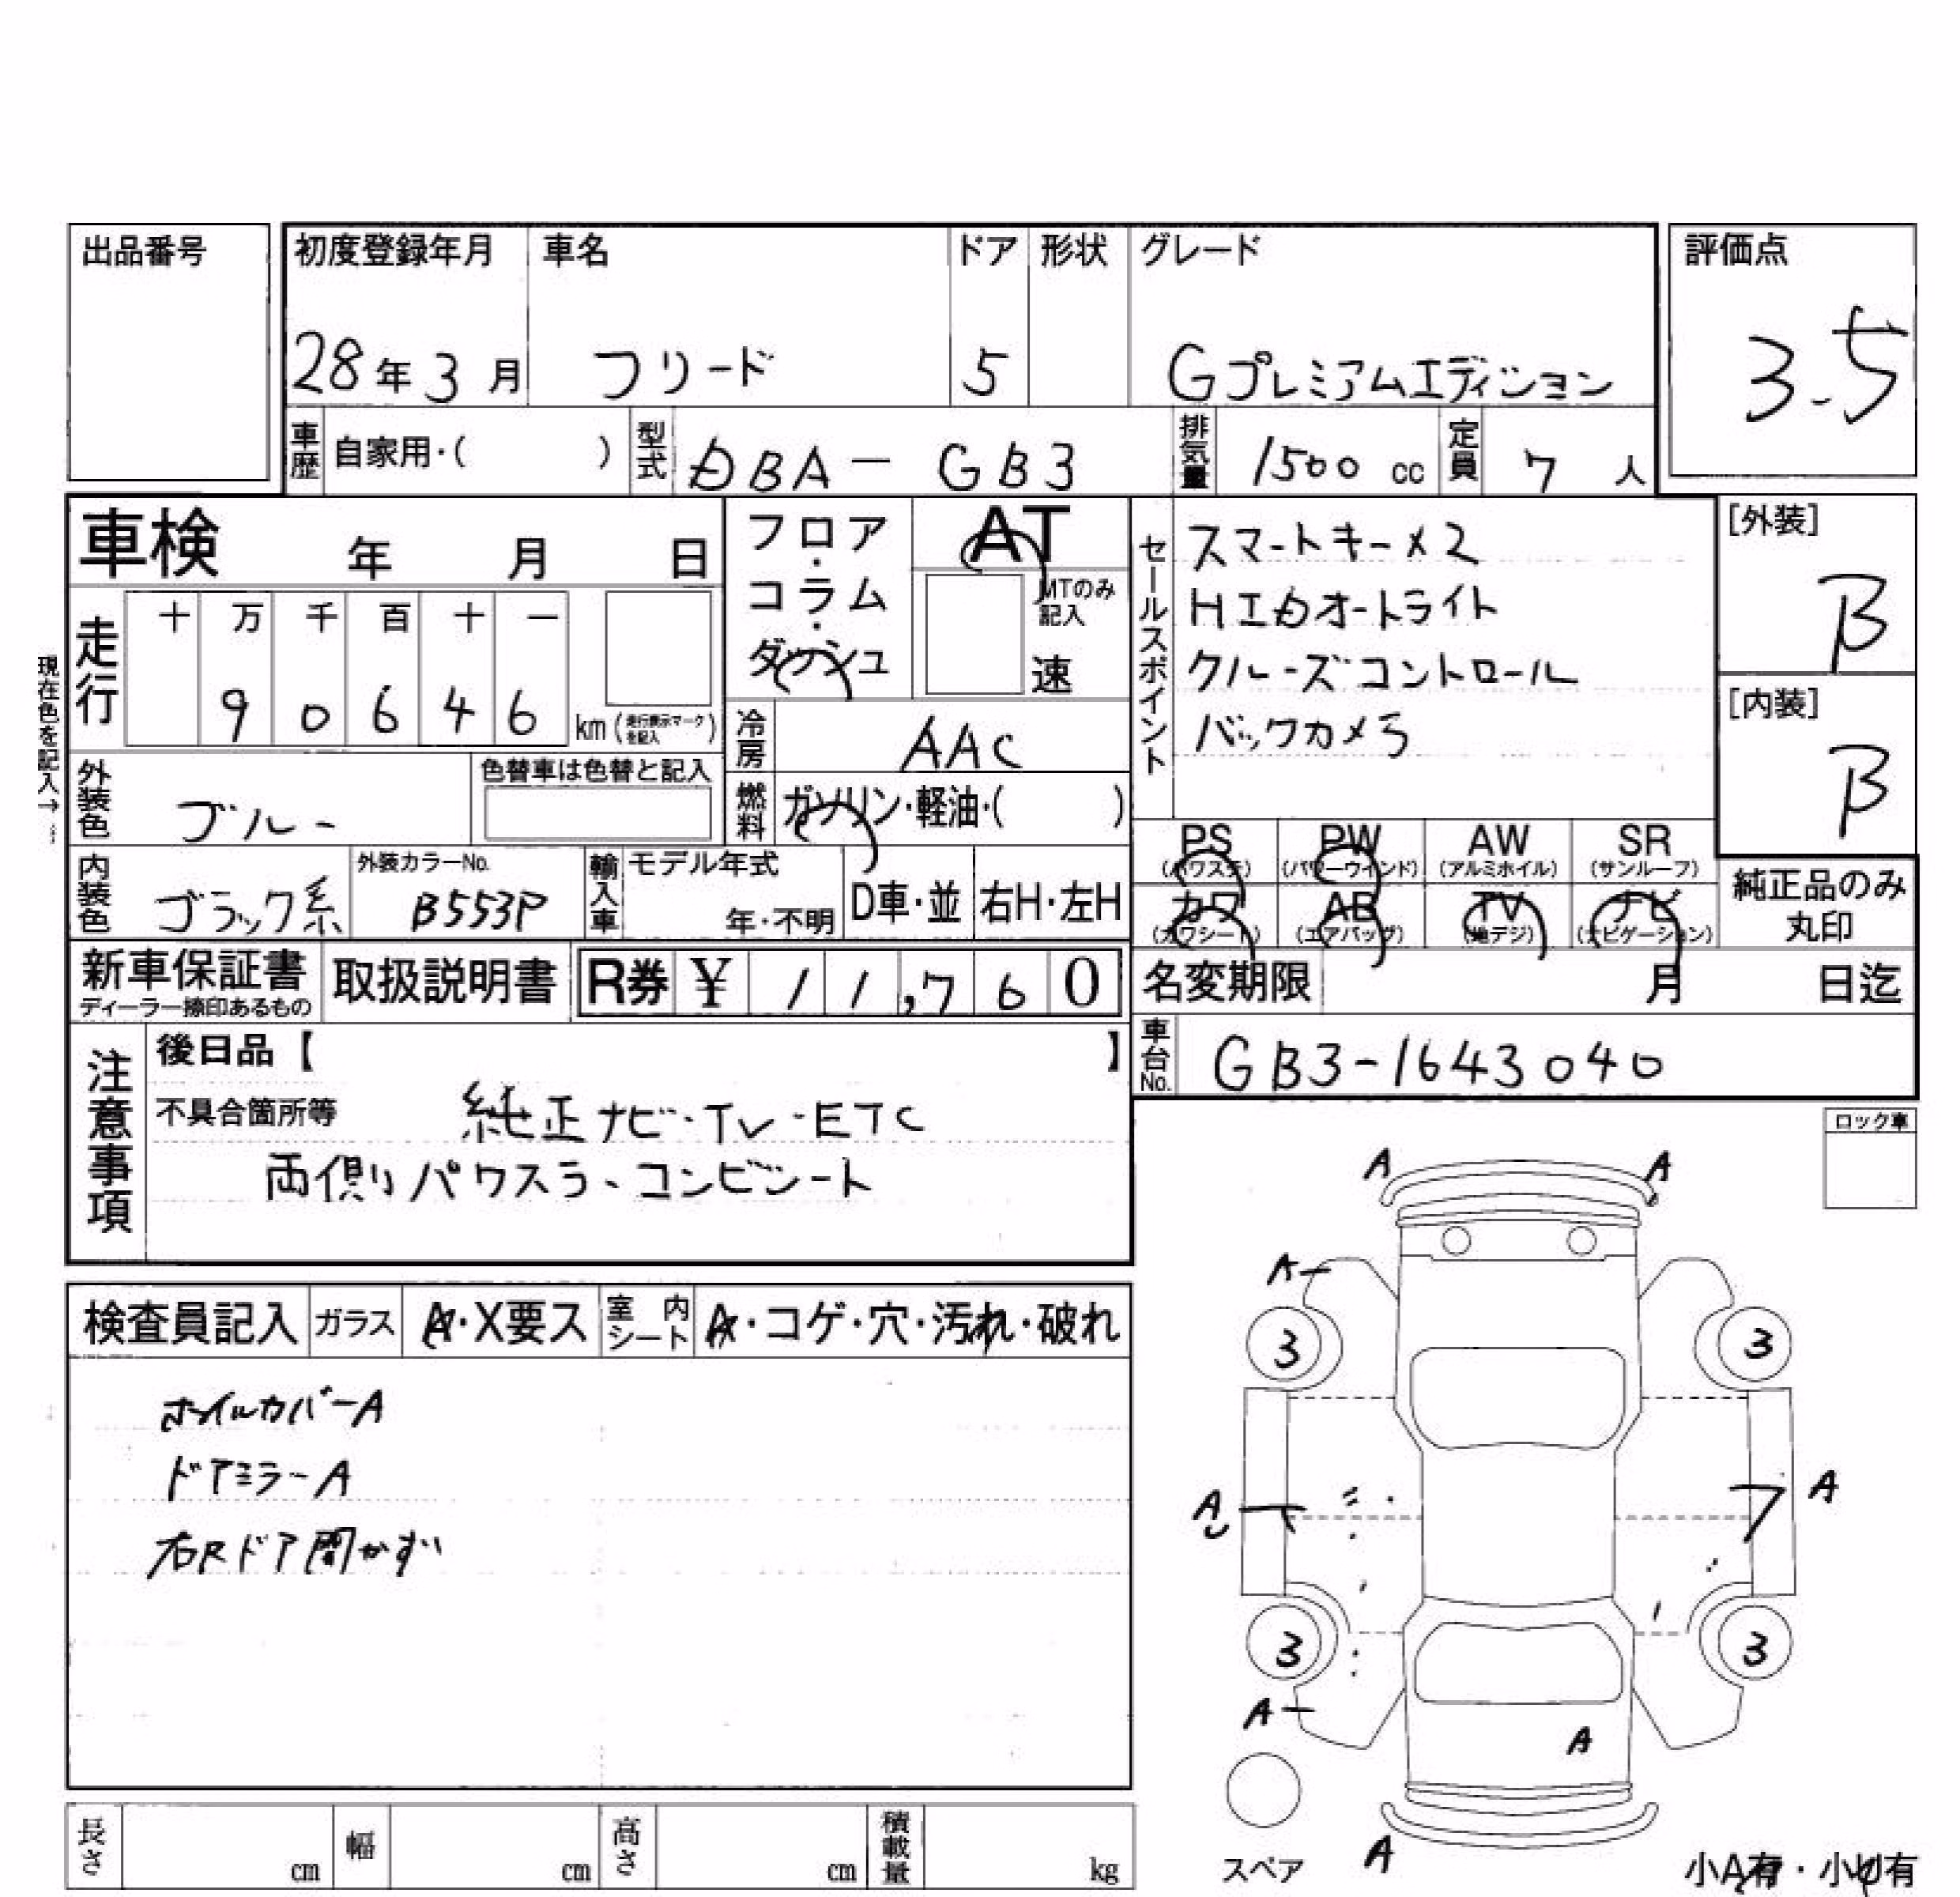 出品番号
初度登録年月 車名 ドア 形状 グレード
評価点
28年3月 フリード 5 Gプレミアムエディション
3.5
車歴 自家用・( ) 型式 DBA-GB3 排気量 1500 cc 定員 7 人
車検 年 月 日
フロア・コラム・ダッシュ
AT
MTのみ記入
速
セールスポイント
スマートキー×2
HIDオートライト
クルーズコントロール
バックカメラ
[外装]
B
[内装]
B
現在色を記入→
走行 十 万 千 百 十 一
9 0 6 4 6 km (走行表示マークを記入)
冷房 AAC
外装色 ブルー
色替車は色替と記入
燃料 ガソリン・軽油・( )
PS (パワステ) PW (パワーウィンド) AW (アルミホイル) SR (サンルーフ)
カワ (カワシート) AB (エアバッグ) TV (地デジ) ナビ (ナビゲーション)
純正品のみ丸印
内装色 ブラック系 外装カラーNo. B553P 輸入車 モデル年式 年・不明 D車・並 右H・左H
新車保証書 ディーラー捺印あるもの 取扱説明書 R券 ¥ 11,760
名変期限 月 日迄
車台No. GB3-1643040
注意事項
後日品【 】
不具合箇所等 純正ナビ・TV・ETC
両側パワスラ、コンビシート
ロック車
検査員記入 ガラス A・X要ス 室内シート A・コゲ・穴・汚れ・破れ
ホイルカバーA
ドアミラーA
右Rドア開かず
A A
A
3 3
A
A
3 3
A
A
A
スペア
小A有・小U有
長さ cm 幅 cm 高さ cm 積載量 kg